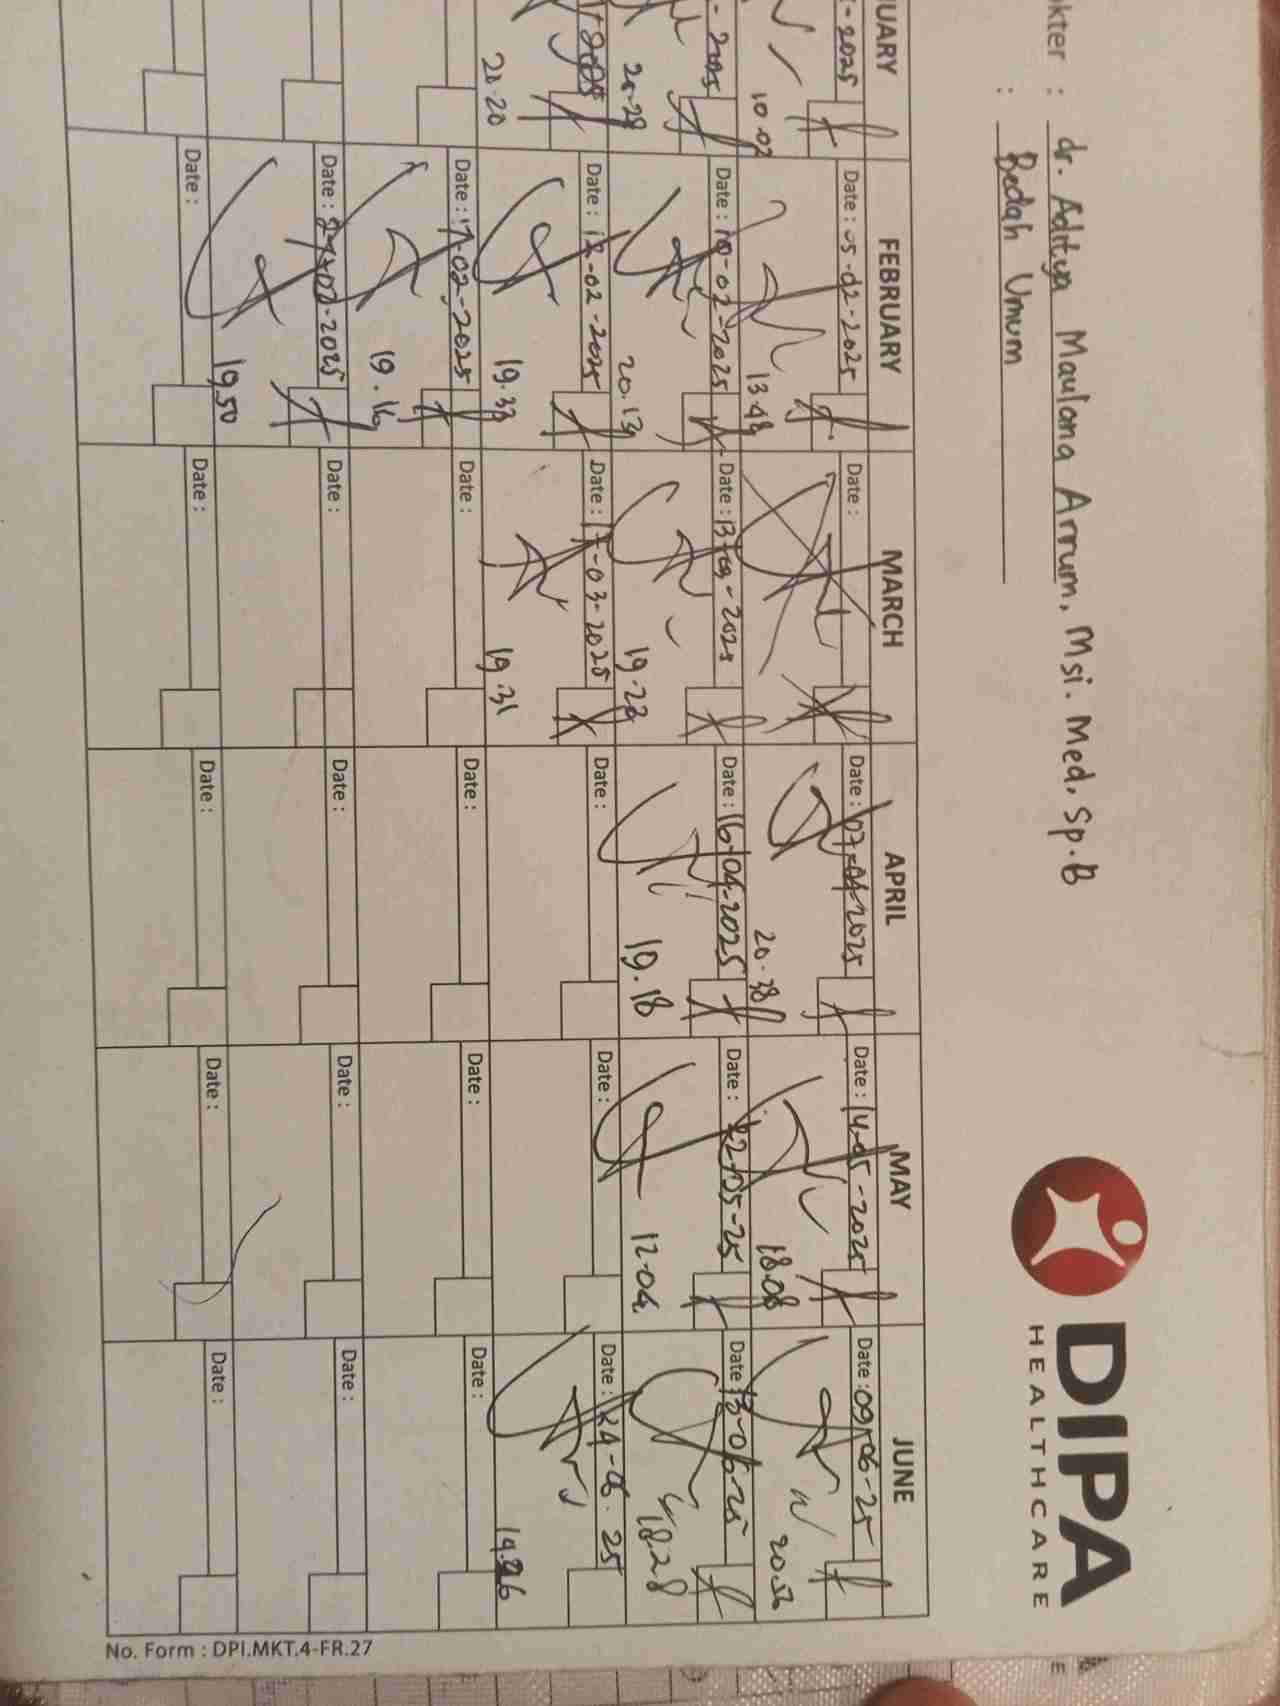 DIPA
HEALTHCARE
kter : dr. Aditya Maulana Arrum, Msi. Med. Sp.B
: Bedah Umum
UARY
FEBRUARY
MARCH
APRIL
MAY
JUNE
-2025
Date : 05-02-2025
Date :
Date : 07-04-2025
Date : 14-05-2025
Date : 09-06-25
10.02
13.48
20.38
18.08
20.56
-2025
Date : 10-02-2025
Date : 13-03-2025
Date : 16-04-2025
Date : 22-05-25
Date : 13-06-25
20.28
20.13
19.22
19.18
12.04
18.28
2025
Date : 12-02-2025
Date : 17-03-2025
Date :
Date :
Date : 24-06.25
20.20
19.33
19.31
Date : 17-02-2025
Date :
Date :
Date :
Date :
19.16
Date : 2025
Date :
Date :
Date :
Date :
19.50
Date :
Date :
Date :
Date :
Date :
No. Form : DPI.MKT.4-FR.27